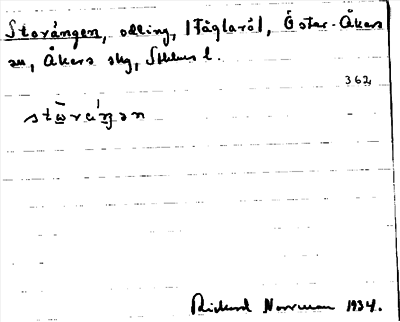 Storängen, odling, (Fåglarö), Öster-Åkers
sn, Åkers skg, Sthlms l.
362,
Rickard Norrman 1934.